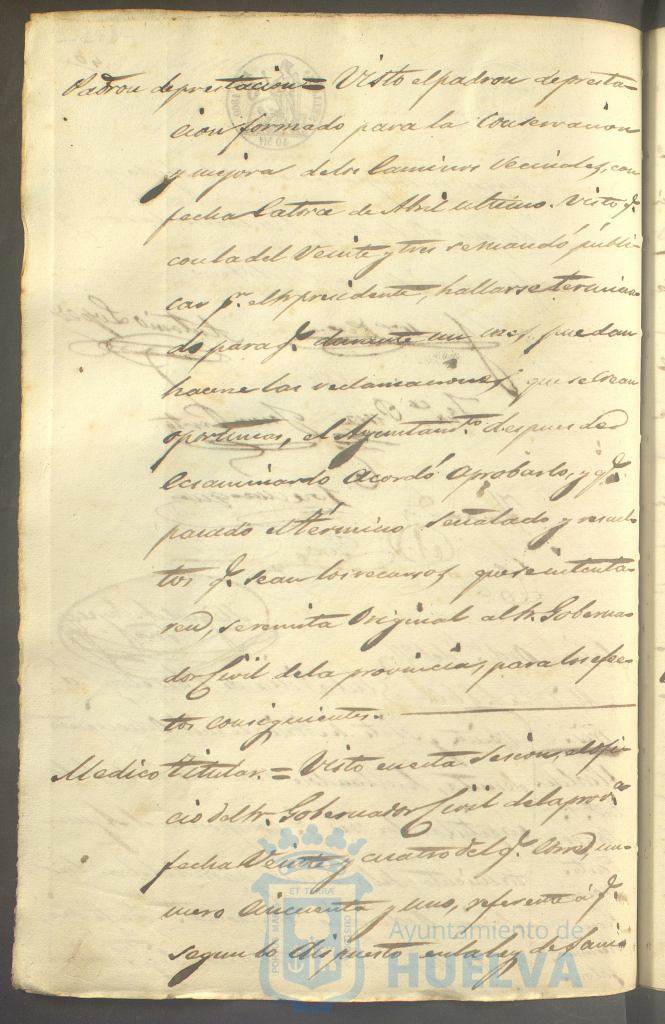 Padron de prestacion = Visto el padron de presta-
cion formado para la Conservacion
y mejora de los Caminos Vecinales, con
fecha Catorce de Abril ultimo. Visto q.
con la del Veinte y tres se mandó publi-
car pr. el Sr. presidente, hallarse termina-
do para q. durante un mes, puedan
hacerse las reclamaciones que se crean
oportunas, el Ayuntamto. despues de
Ecsaminarlo Acordó aprobarlo, y q.
pasado el término señalado y resuel-
tos q. sean los recursos que se intenta-
ren, se remita Original al Sr. Goberna-
dor Civil de la provincia, para los efec-
tos consiguientes.
Medico titular. = Visto en esta Sesion, el ofi-
cio del Sr. Gobernador Civil de la prova.
fecha Veinte y cuatro del q. Corre, nu-
mero cincuenta y uno, referente á q.
segun lo dispuesto en la ley de Sani-
Ayuntamiento de
HUELVA